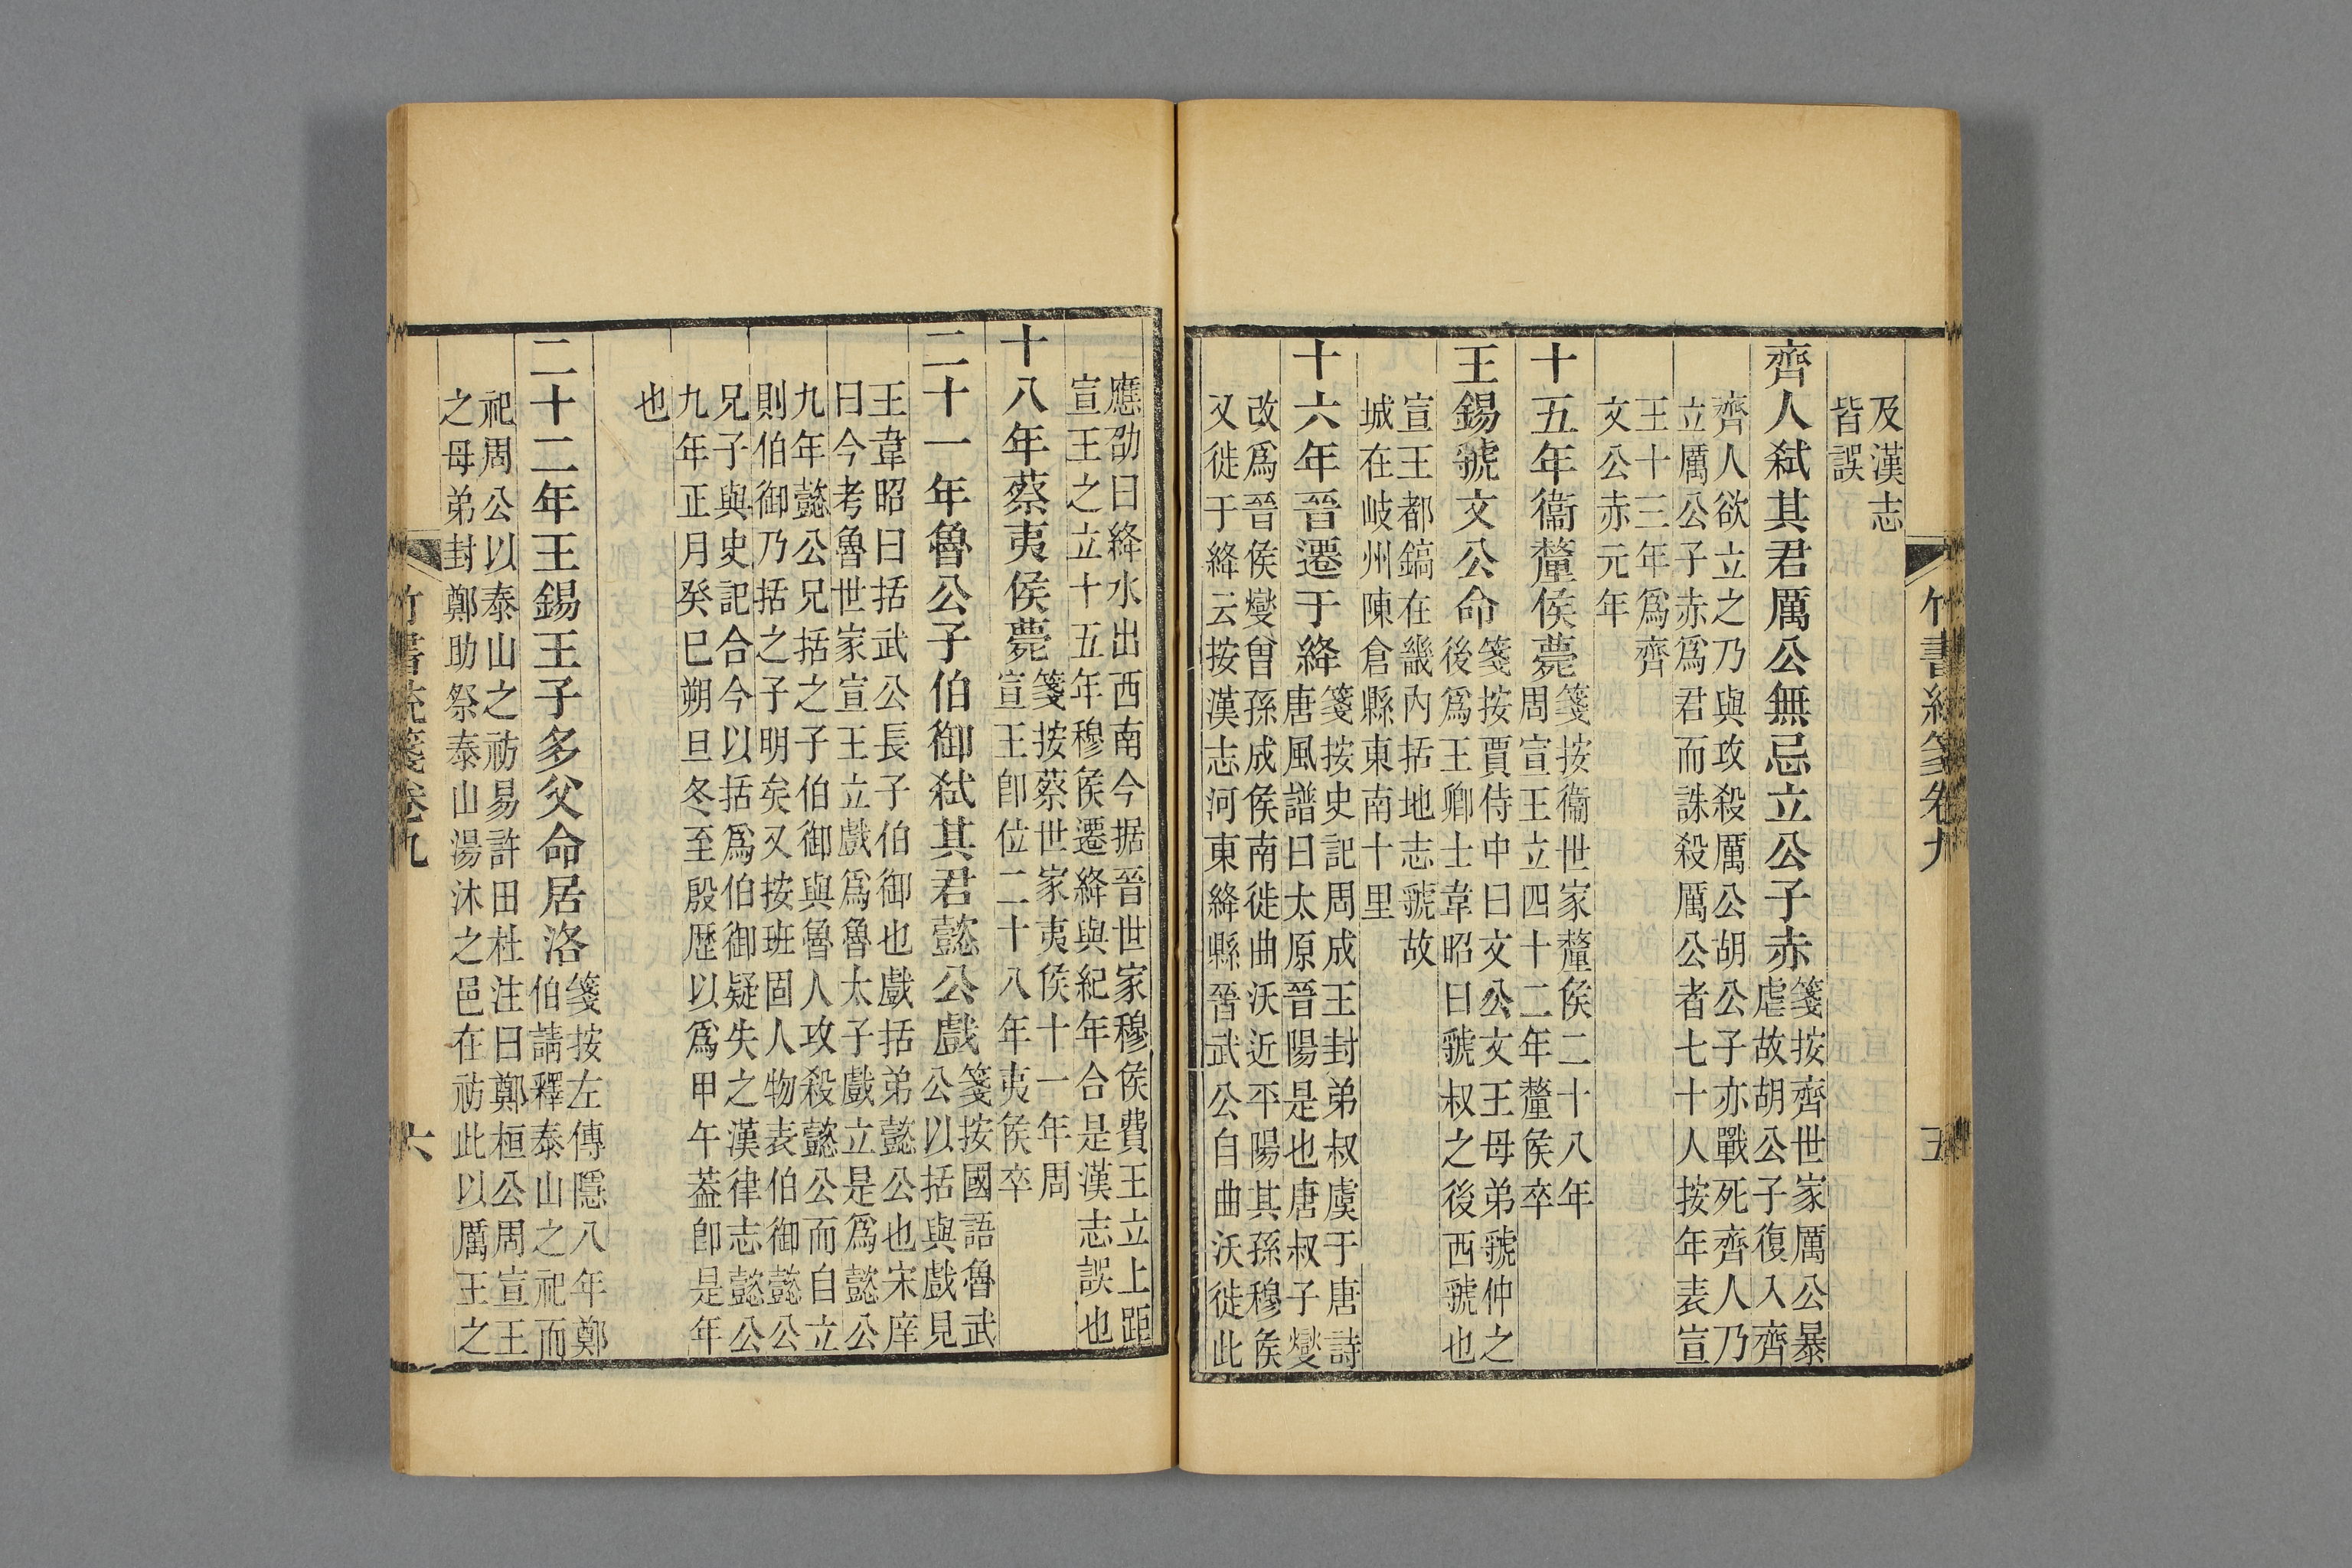 及漢志
皆誤
齊人弒其君厲公無忌立公子赤
箋按齊世家厲公暴
虐故胡公子復入齊
齊人欲立之乃與攻殺厲公胡公子亦戰死齊人乃
立厲公子赤為君而誅殺厲公者七十人按年表宣
王十三年爲齊
文公赤元年
十五年衞釐侯薨
箋按衞世家釐侯二十八年
周宣王立四十二年釐侯卒
王錫虢文公命
箋按賈侍中曰文公文王母弟虢仲之
後爲王卿士韋昭曰虢叔之後西虢也
宣王都鎬在畿內括地志虢故
城在岐州陳倉縣東南十里
十六年晉遷于絳
箋按史記周成王封弟叔虞于唐詩
唐風譜曰太原晉陽是也唐叔子燮
改爲晉侯燮曾孫成侯南徙曲沃近平陽其孫穆侯
又徙于絳云按漢志河東絳縣晉武公自曲沃徙此
竹書統箋卷九
五
應劭曰絳水出西南今据晉世家穆侯費王立上距
宣王之立十五年穆侯遷絳與紀年合是漢志誤也
十八年蔡夷侯薨
箋按蔡世家夷侯十一年周
宣王卽位二十八年夷侯卒
二十一年魯公子伯御弒其君懿公戲
箋按國語魯武
公以括與戲見
王韋昭曰括武公長子伯御也戲括弟懿公也宋庠
曰今考魯世家宣王立戲爲魯太子戲立是爲懿公
九年懿公兄括之子伯御與魯人攻殺懿公而自立
則伯御乃括之子明矣又按班固人物表伯御懿公
兄子與史記合今以括爲伯御疑失之漢律志懿公
九年正月癸巳朔旦冬至殷歷以爲甲午葢卽是年
也
二十二年王錫王子多父命居洛
箋按左傳隱八年鄭
伯請釋泰山之祀而
祀周公以泰山之祊易許田杜注曰鄭桓公周宣王
之母弟封鄭助祭泰山湯沐之邑在祊此以厲王之
竹書統箋卷九
六